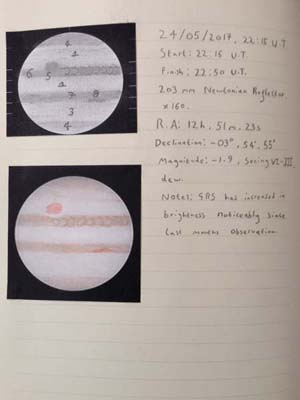 24/05/2017, 22:15 U.T
Start: 22:15 U.T.
Finish: 22:50 U.T.
203 mm Newtonian Reflector
x160.
R.A: 12h, 51m, 23s
Declination: -03°, 54', 55"
Magnitude: -1.9, Seeing II-III,
dew.
Notes: GRS has increased in
brightness noticeably since
last months observation.
4
4
6
5
4
7
8
3
4